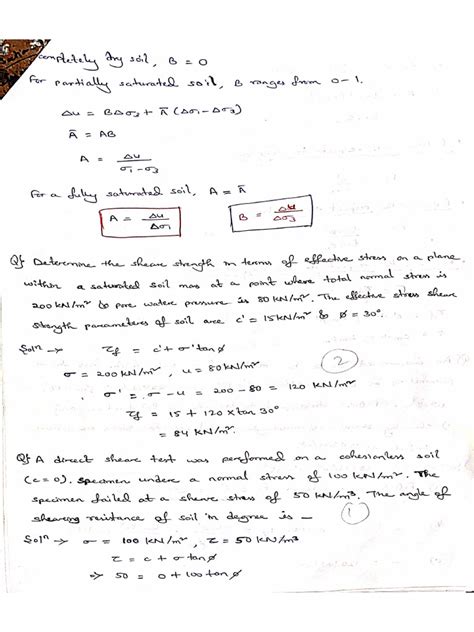 completely dry soil, B = 0
For partially saturated soil, B ranges from 0-1.
Δu = BΔσ3 + Ā (Δσ1 - Δσ3)
Ā = AB
A = Δu / σ1 - σ3
For a fully saturated soil, A = Ā
A = Δu / Δσ1 B = Δu / Δσ3
Q) Determine the shear strength in terms of effective stress on a plane
within a saturated soil mas at a point where total normal stress is
200 kN/m² & pore water pressure is 80 kN/m². The effective stress shear
strength parameters of soil are c' = 15 kN/m² & ø = 30°.
Solⁿ → τf = c' + σ' tanø
σ = 200 kN/m², u = 80 kN/m²
σ' = σ - u = 200 - 80 = 120 kN/m²
τf = 15 + 120 x tan 30°
= 84 kN/m².
2
Q) A direct shear test was performed on a cohesionless soil
(c = 0). specimen under a normal stress of 100 kN/m². The
specimen failed at a shear stress of 50 kN/m³. The angle of
shearing reistance of soil in degree is —
1
Solⁿ → σ = 100 kN/m², τ = 50 kN/m³
τ = c + σ tanø
⇒ 50 = 0 + 100 tanø